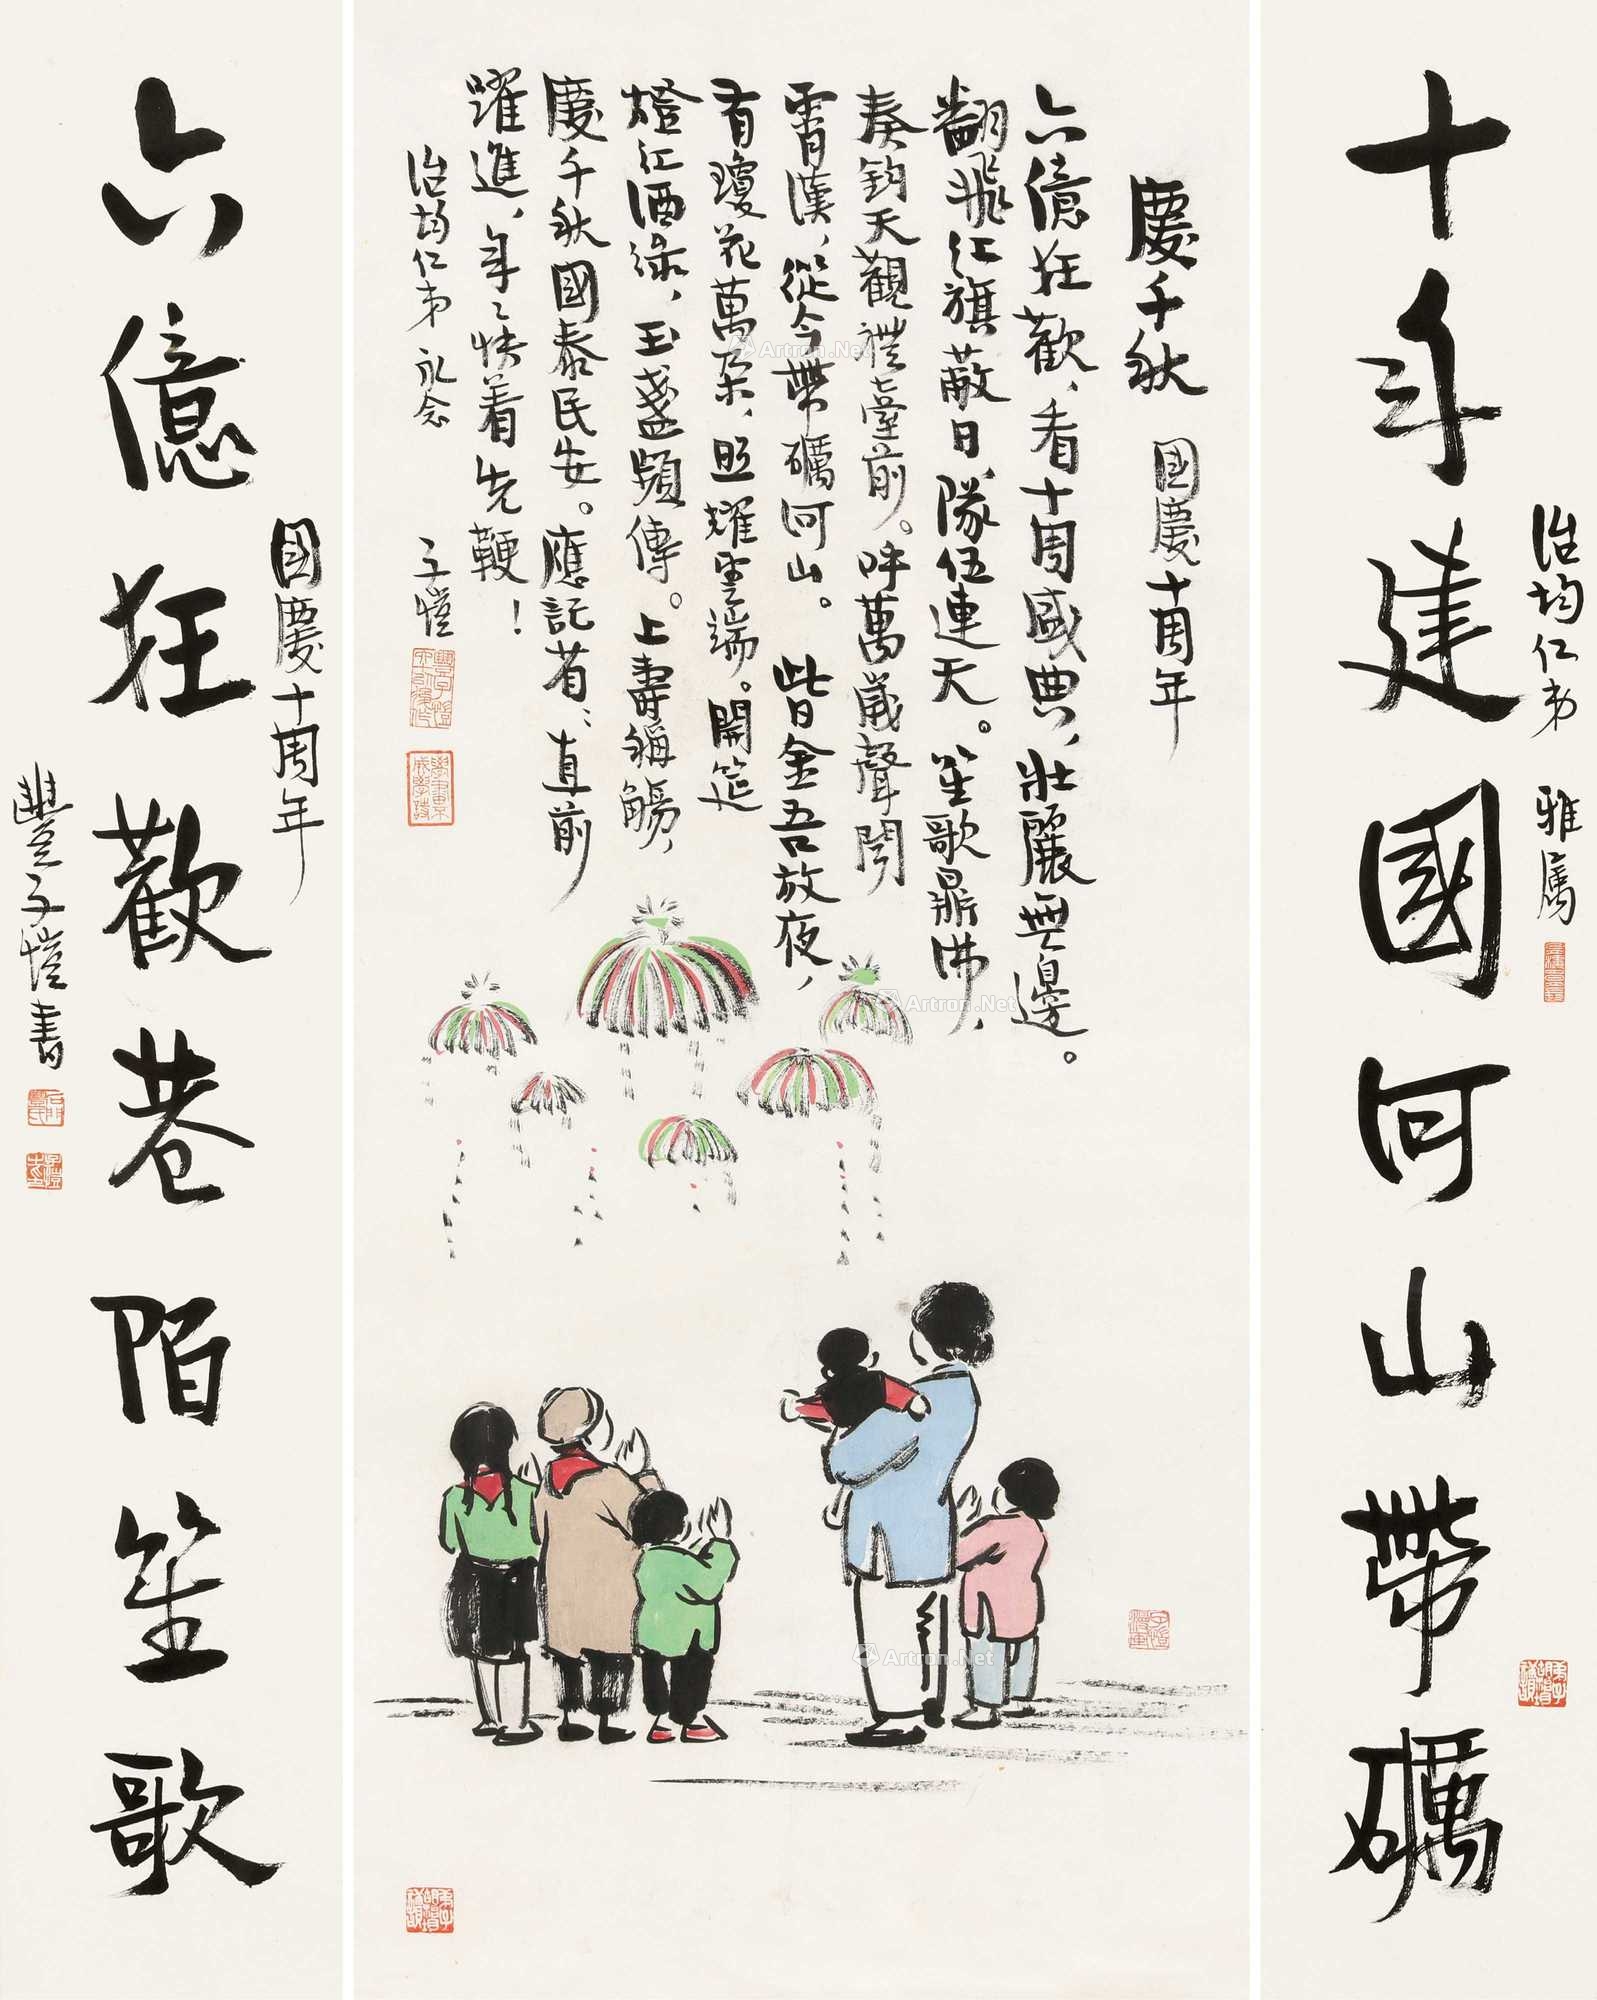 十年建國河山帶礪
治均仁弟 雅屬
慶千秋 國慶十周年
六億狂歡，看十周盛典，壯麗無邊。
翻飛紅旗蔽日，隊伍連天。笙歌鼎沸，
奏鈞天觀禮臺前。呼萬歲聲聞
霄漢，從今帶礪河山。 此日金吾放夜，
有瓊花萬朵，照耀雲端。開筵
燈紅酒綠，玉盞頻傳。上壽稱觴，
慶千秋國泰民安。應記省：直前
躍進，年々快着先鞭！
治均仁弟 永念
子愷
六億狂歡巷陌笙歌
國慶十周年
豐子愷書
Artron.Net
Artron.Net
Artron.Net